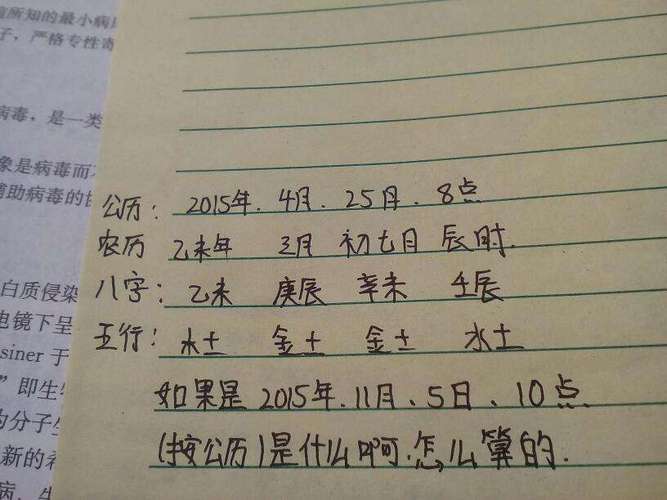 所知的最小病
子，严格专性寄
病毒，是一类
象是病毒而
辅助病毒的
公历：2015年.4月.25日.8点
农历 乙未年 三月 初七日 辰时.
八字：乙未 庚辰 辛未 壬辰
五行：木土 金土 金土 水土
如果是 2015年.11月、5日、10点
(按公历)是什么啊.怎么算的.
白质侵染
电镜下呈
siner 于
”即生
为分子
新的希
病，生